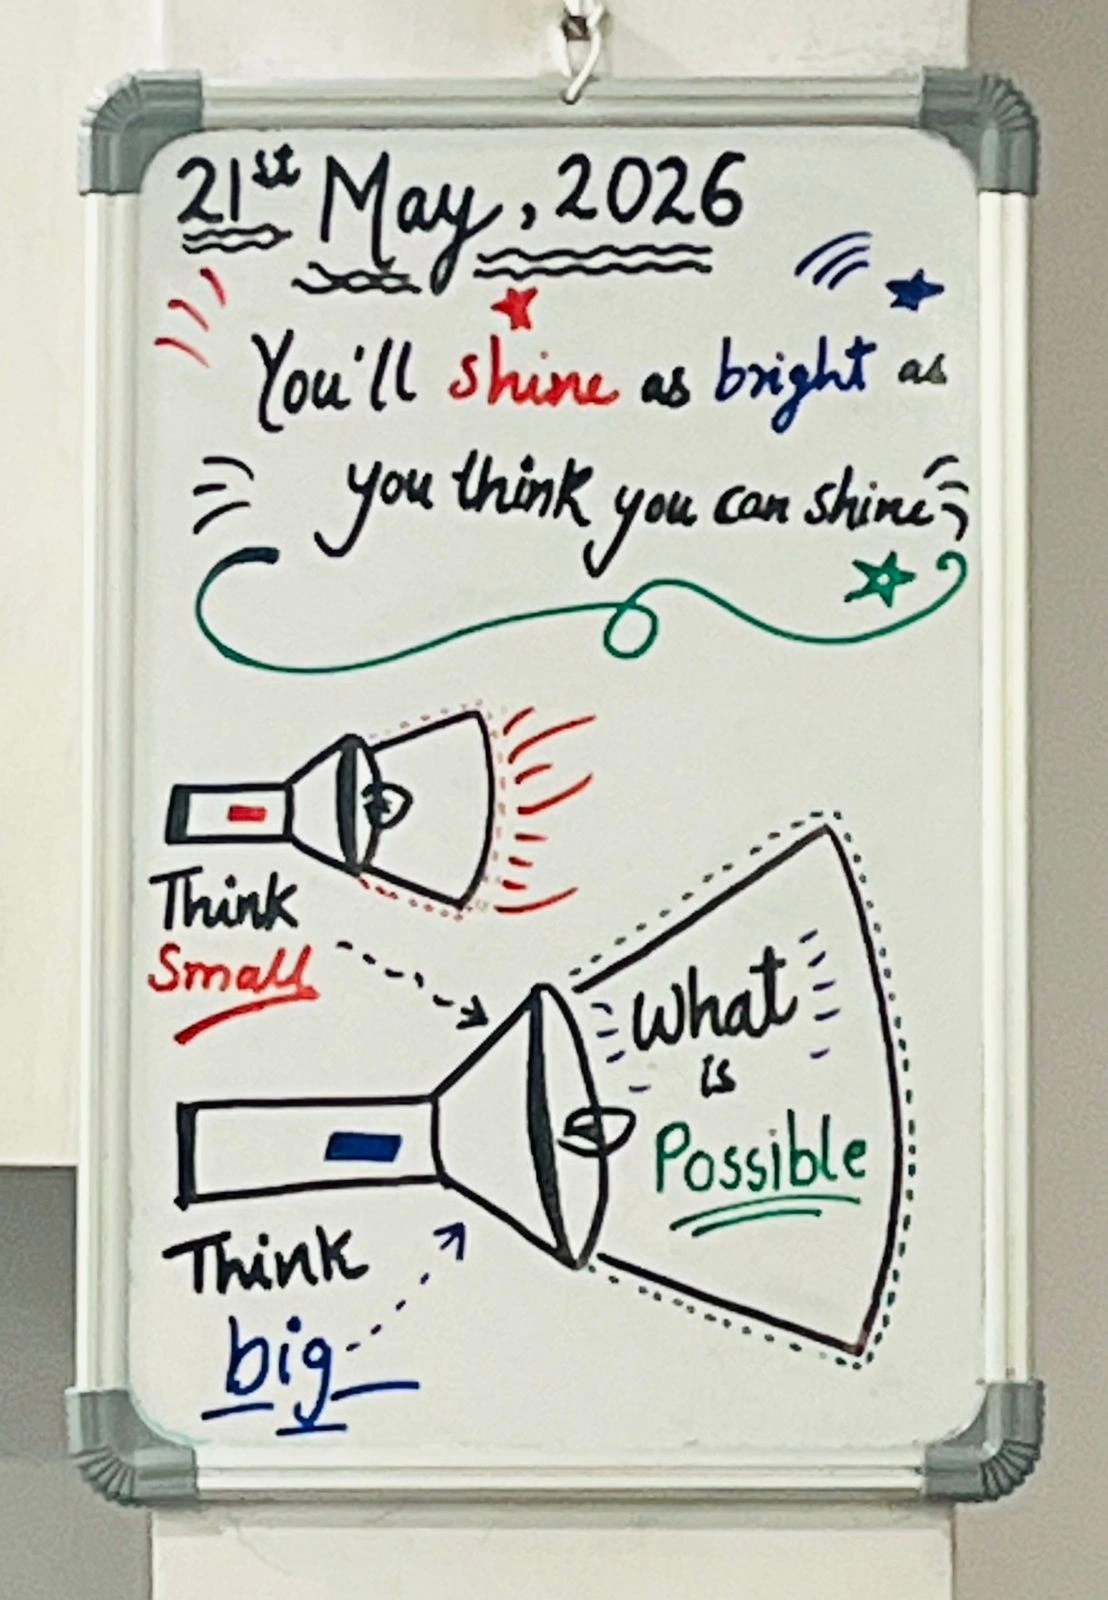 21st May, 2026
You'll shine as bright as
you think you can shine
Think
Small
What
is
Possible
Think
big